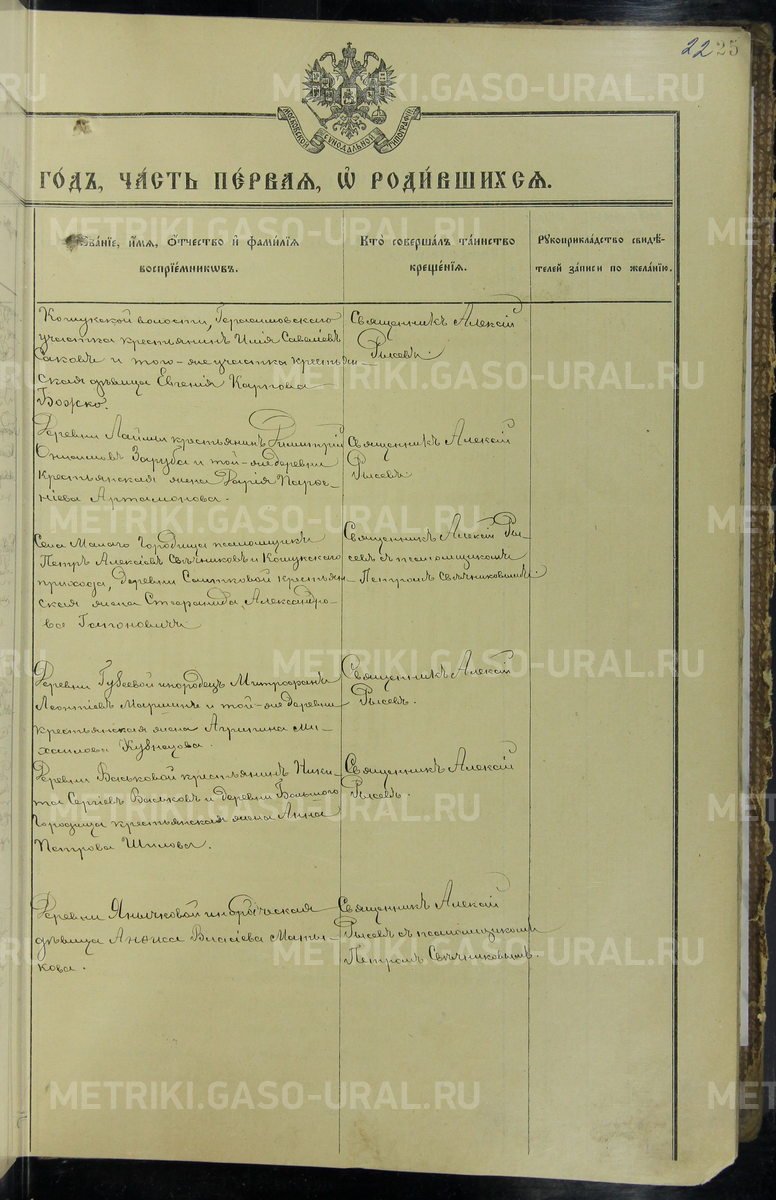 22 25
МОСКОВСКОЙ СУНОДАЛЬНОЙ ТИПОГРАФІИ
ГО́ДЪ, ЧА́СТЬ ПЕ́РВАЯ, Ѡ҆ РОДИ́ВШИХСЯ.
Зва́нїе, и҆́мя, ѻ҆́тчество и҆ фами́лїя
воспрїе́мниковъ.
Кто̀ соверша́лъ та́инство
креще́нїя.
Рꙋкоприкла́дство свидѣ́-
телей за́писи по жела́нїю.
Кошукской волости, Герасимовского
участка крестьянинъ Илія Савельевъ
Саковъ и того-же участка крестьян-
ская дѣвица Евгенія Карпова
Божко.
Священникъ Алексій
Рысевъ.
Деревни Лаймы крестьянинъ Димитрій
Онисимовъ Заруба и той-же деревни
крестьянская жена Дарія
Артамонова.
Священникъ Алексій
Рысевъ.
Села Малаго Городища псаломщикъ
Петръ Алексіевъ Свѣчниковъ и Кошукскаго
прихода, деревни Саитковой крестьян-
ская жена Стефанида Александро-
ва Гапоновичъ.
Священникъ Алексій Ры-
севъ съ псаломщикомъ
Петромъ Свѣчниковымъ.
Деревни Губеевой инородецъ Митрофанъ
Леонтіевъ и той-же деревни
крестьянская жена Агрипина Ми-
хаилова Кузнецова.
Священникъ Алексій
Рысевъ.
Деревни Васьковой крестьянинъ Ники-
та Сергіевъ Васьковъ и деревни Большого
Городища крестьянская жена Анна
Петрова Шилова.
Священникъ Алексій
Рысевъ.
Деревни Янычковой инородческая
дѣвица Анѳиса Власіева Маты-
кова.
Священникъ Алексій
Рысевъ съ псаломщикомъ
Петромъ Свѣчниковымъ.
METRIKI.GASO-URAL.RU